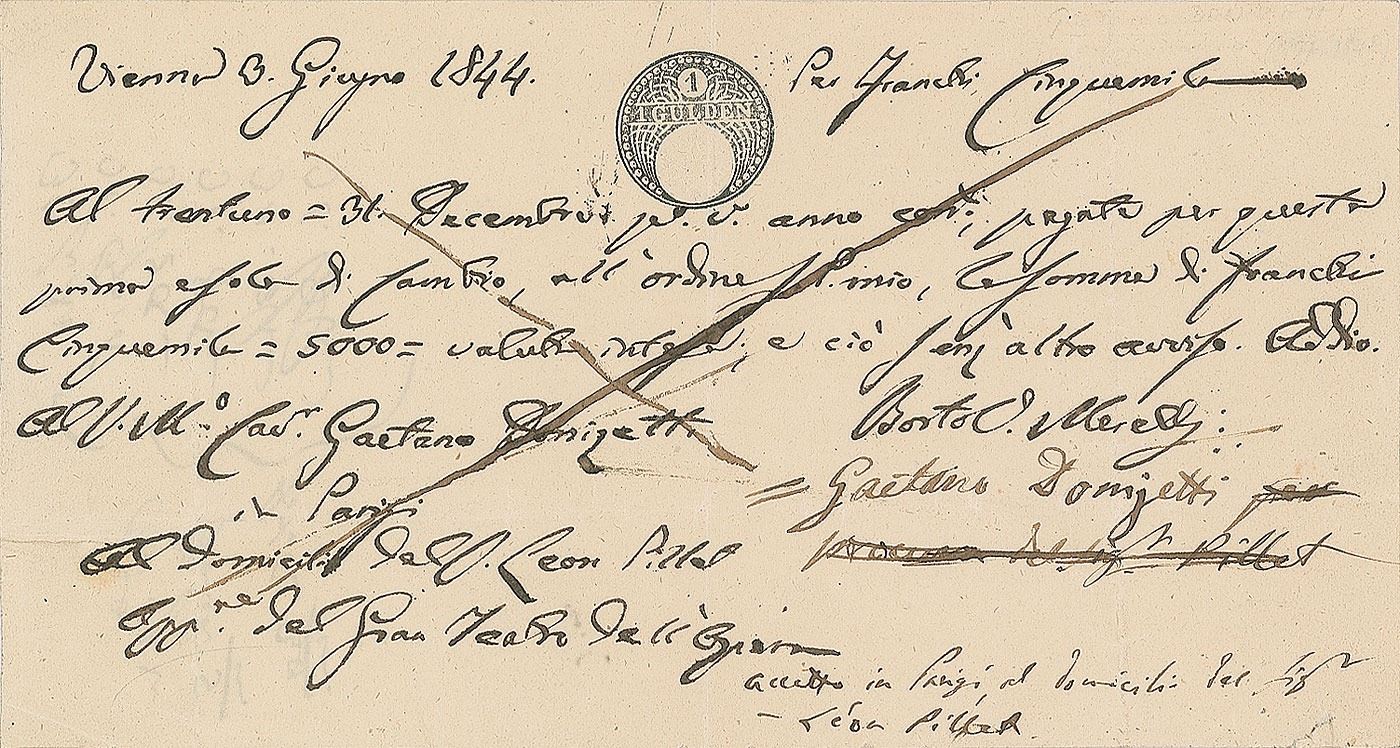 Vienna 3. Giugno 1844.
1
1 GULDEN
Per Franchi Cinquemila
Al trentuno = 31. Decembre anno corr. pagate per questa
prima e sola di Cambio, all'ordine S.P. mio, la somma di Franchi
Cinquemila = 5000 = valuta intesa, e ciò senz'altro avviso. Addio.
Al S. Mº Cavr Gaetano Donizetti
Bortol. Merelli
in Parigi
= Gaetano Donizetti per
Al domicilio del S. Leon Pillet
procura del Sigr Pillet
del Gran Teatro dell'Opera
accetto in Parigi, al domicilio del Sigr
- Léon Pillet